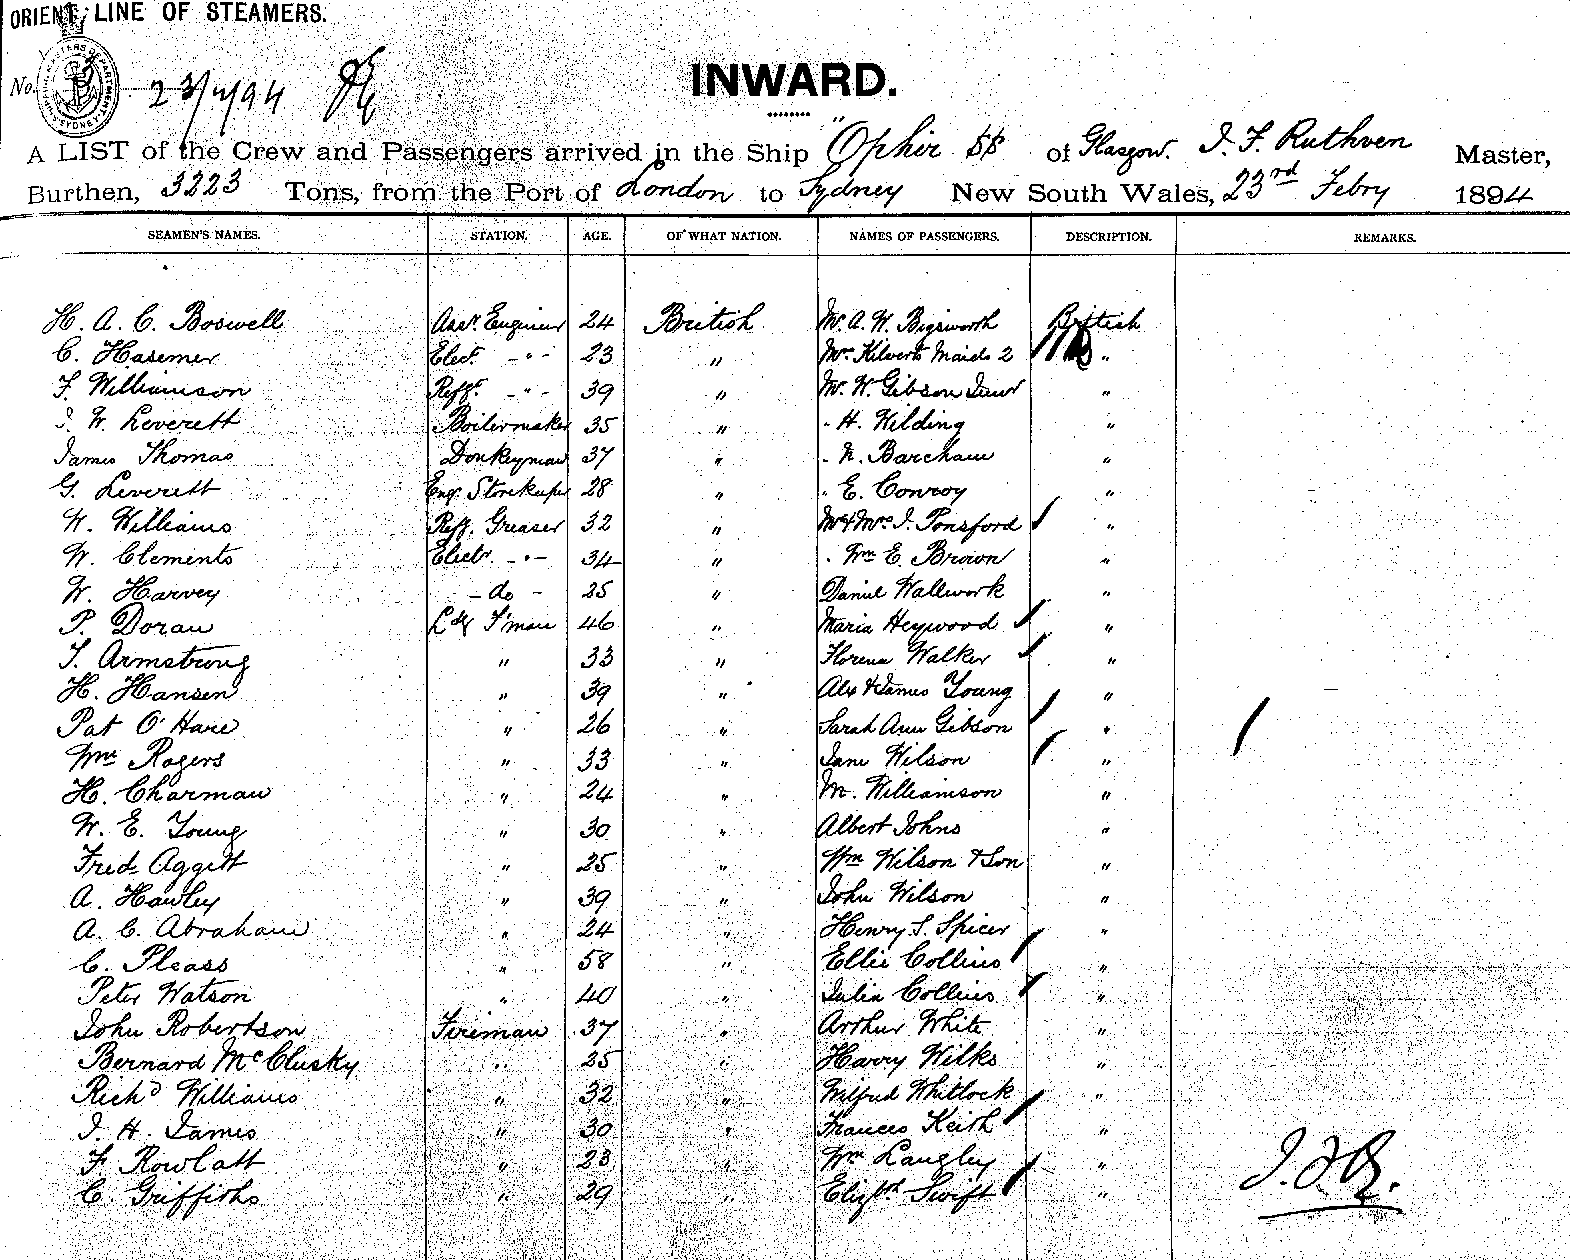 ORIENT LINE OF STEAMERS.
No. 23/2/94
INWARD.
A LIST of the Crew and Passengers arrived in the Ship "Ophir SS of Glasgow. J. F. Ruthven Master,
Burthen, 3223 Tons, from the Port of London to Sydney New South Wales, 23rd Febry 1894
SEAMEN'S NAMES. STATION. AGE. OF WHAT NATION. NAMES OF PASSENGERS. DESCRIPTION. REMARKS.
H. A. C. Boswell Asst. Engineer 24 British Mr. A. W. Bigsworth British
C. Hasemer Elect. - " - 23 " Mrs Kilverts Maids 2 "
F. Williamson Reffr. - " - 39 " Mr. W. Gibson Junr "
J. W. Leverett Boilermaker 35 " " H. Wilding "
James Thomas Donkeyman 37 " " N. Barcham "
G. Leverett Engr. Storekeeper 28 " " E. Conroy "
W. Williams Reff. Greaser 32 " Mr & Mrs J. Ponsford "
W. Clements Electr. - " - 34 " " Wm E. Brown "
W. Harvey - do - 25 " Daniel Wallwork "
P. Doran Ldg F'man 46 " Maria Heywood "
T. Armstrong " 33 " Florence Walker "
H. Hansen " 39 " Alex & James Young "
Pat O'Hare " 26 " Sarah Ann Gibson "
Wm Rogers " 33 " Jane Wilson "
H. Charman " 24 " M. Williamson "
W. E. Young " 30 " Albert Johns "
Fred Aggett " 25 " Wm Wilson & Son "
A. Hawley " 39 " John Wilson "
A. C. Abraham " 24 " Henry S. Spicer "
C. Pleass " 58 " Ellie Collins "
Peter Watson " 40 " Julia Collins "
John Robertson Fireman 37 " Arthur White "
Bernard McClusky " 25 " Harry Wilks "
Richd Williams " 32 " Wilfred Whitlock "
J. H. James " 30 " Frances Keith "
F. Rowlatt " 28 " Wm Langley "
C. Griffiths " 29 " Elizbth Swift "
J.F.R.